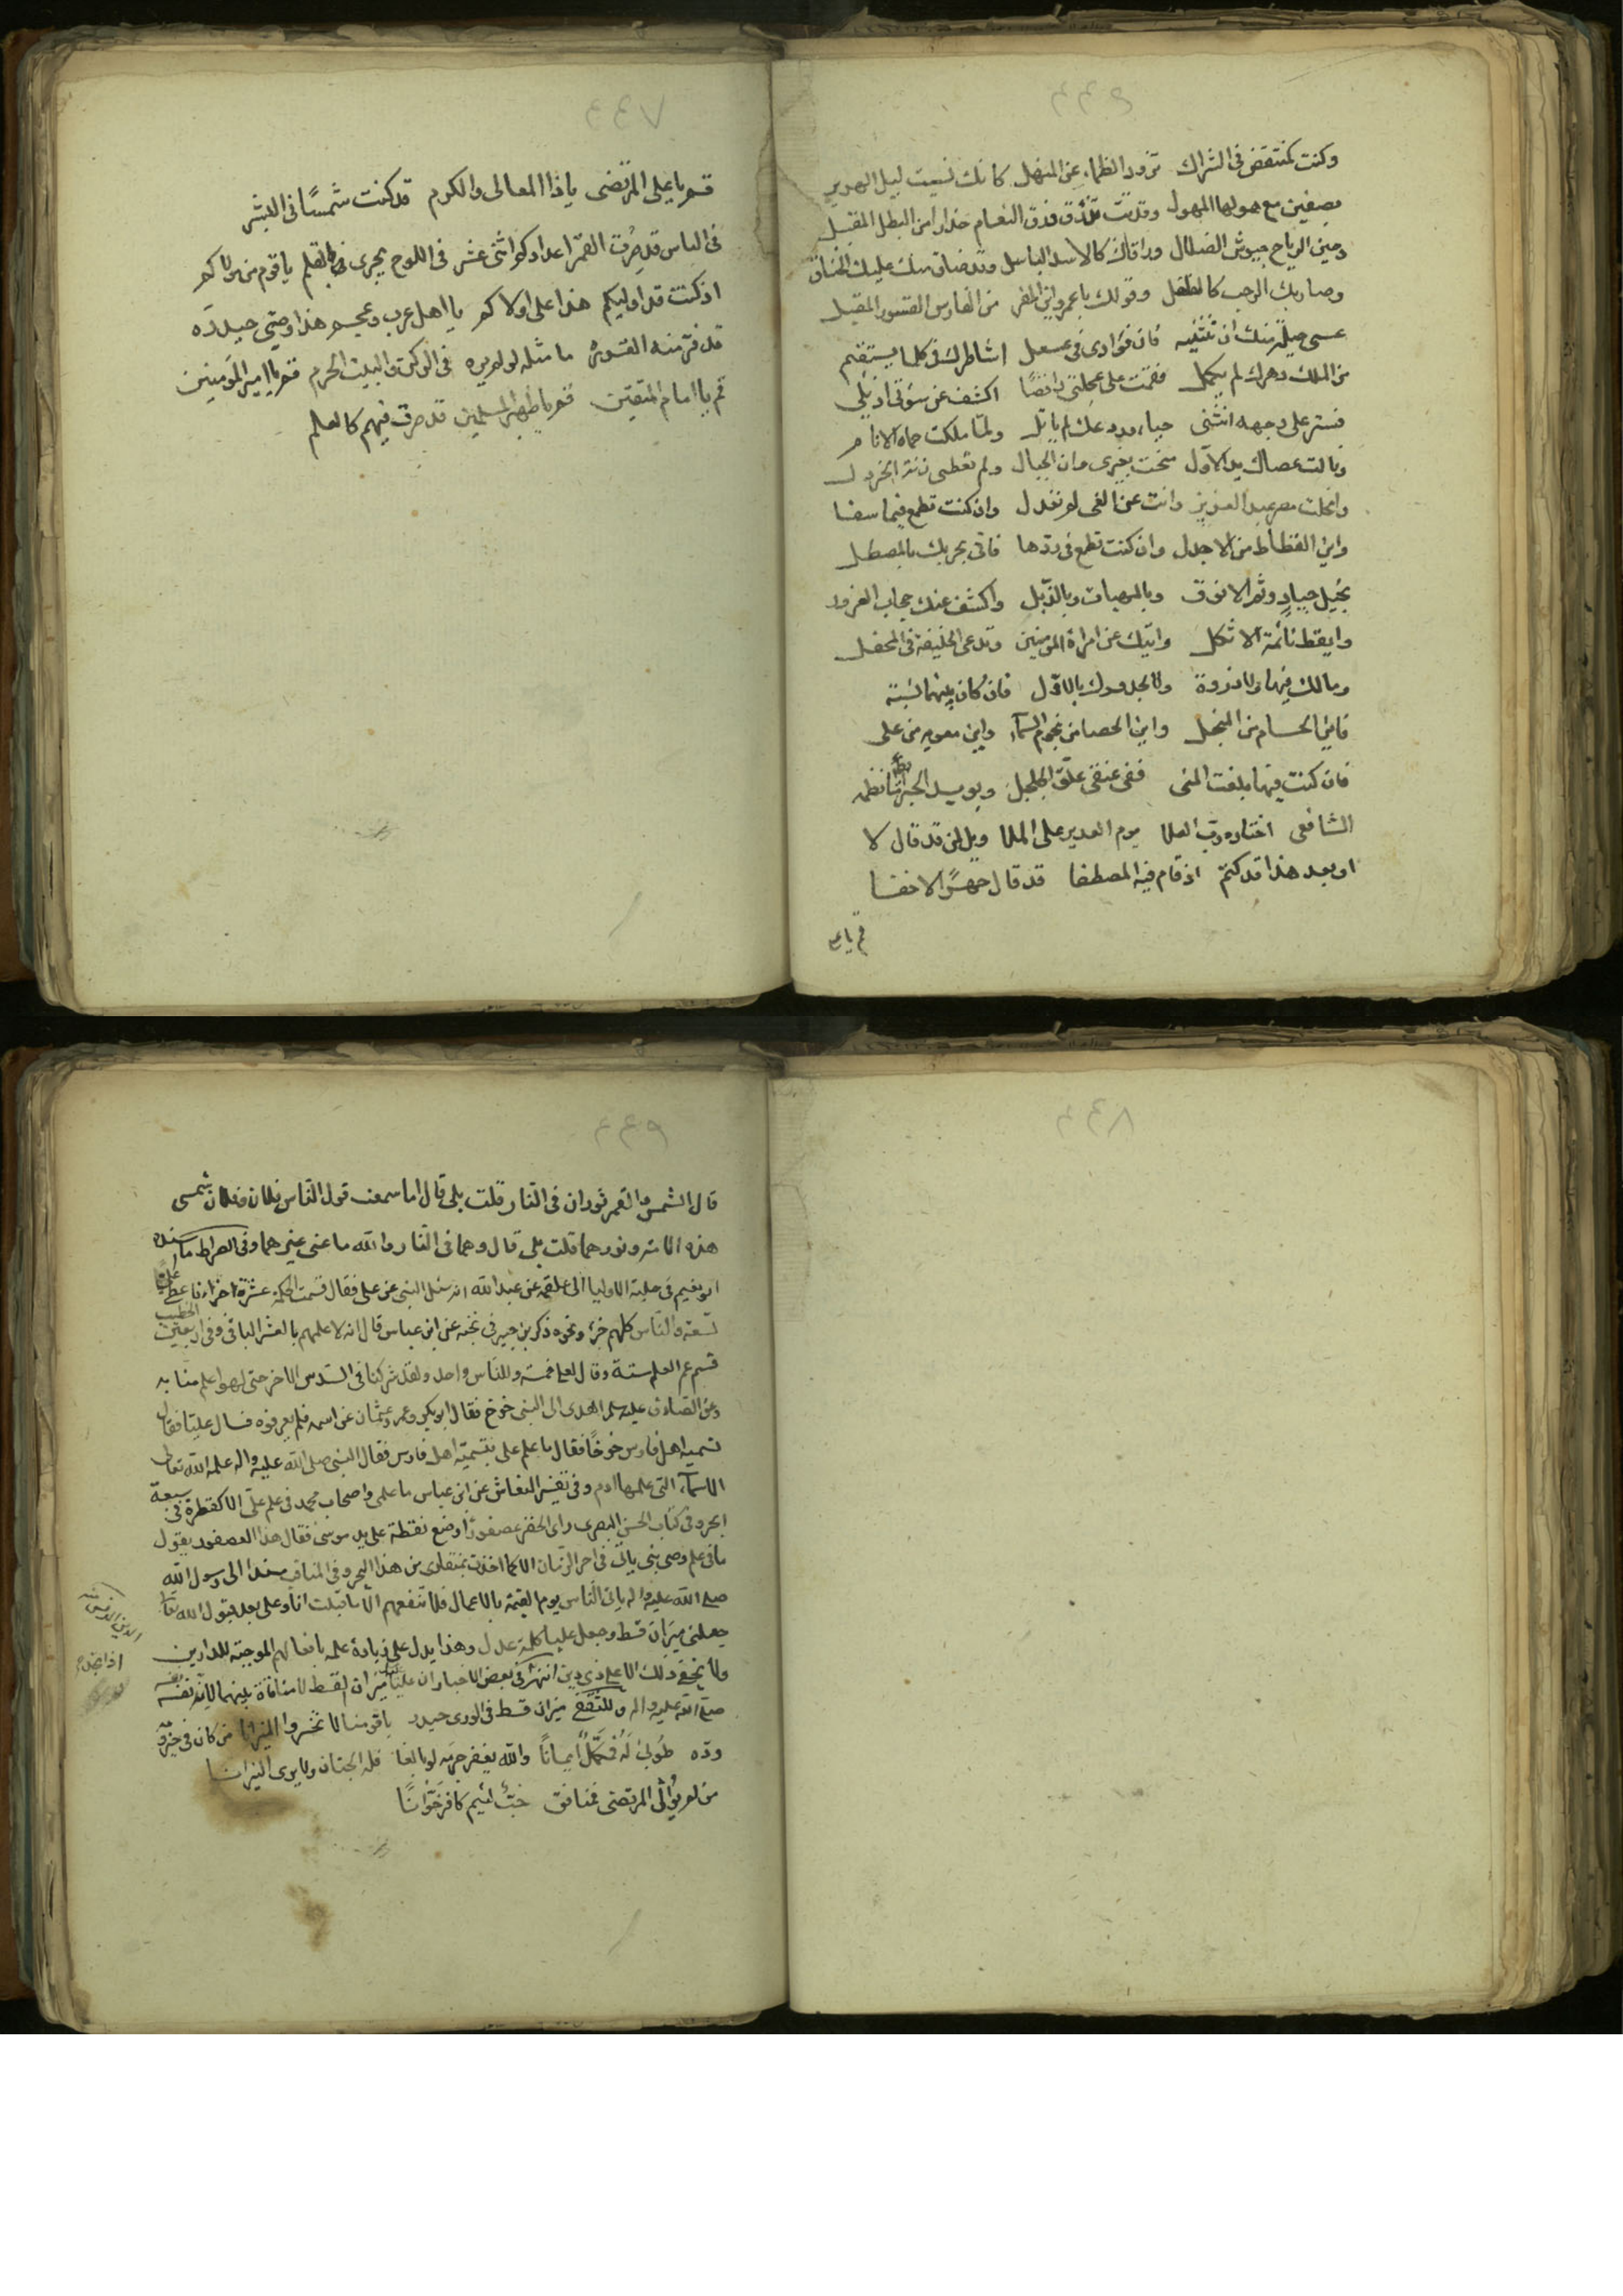 ٤٤٦
وكنت كمنتقض في الشراك تزود الظماء عن المنهل كانك نسيت ليل الهرير
بصفين مع هولها المهول وقد بت تذرق ذرق النعام حذارا من البطل المقبل
وحين ازاح جيوش الضلال وافاك كالاسد الباسل وقد ضاق منك عليك الخناق
وصار بك الرحب كالفلفل وقولك يا عمرو اين المفر من الفارس القسور المقبل
عسى حيلة منك ان تثنيه فان فؤادى فى عسعل اشاطرك فى كلما يستقيم
من الملك دهرك لم يكمل فقمت على عجلتى رافضا اكشف عن سوئتى اذيلى
فستر على وجهه انثنى حياء وروعك لم ياتل ولما ملكت حماة الانام
ونالت عصاك يد الاول منحت بغيرى من الجبال ولم تعطنى زنة الخردل
وانحلت مصر عبد العزيز وانت عن الغى لم تغدل وان كنت تطمع فيها سفها
واين القطاط من الاجدل وان كنت تطمع فى ردها فانى بحربك بالمصطل
بخيل جياد وشم الانوف وبالمرهبات وبالذبل واكشف عنك حجاب الغرور
وايقظ نائمة الاثكل وانك عن امرأة المومنين وتدعى الخليفة فى المحفل
ومالك فيها ولا ذروة ولا لجدودك بالاول فان كان بينهما نسبة
فاين الحسام من المنجل واين الحصا من نجوم السمآء واين معويه من على
فان كنت فيها بلغت المنى ففى عنقى علق الجلجل ويويد الخبر ايضا ما نظمه
الشافعى اختاره رب العلا يوم الغدير على الملا ويل لمن قد قال لا
او بعد هذا قد كتم اذ قام فيه المصطفا قد قال جهرا لا خفا
قم يا على
٤٤٧
قم يا على المرتضى ياذا المعالى والكرم قد كنت شمسًا فى البشر
فى الناس قد صرت القمر اعدادكم اثنى عشر فى اللوح يجرى فى القلم ياقوم من مولاكم
اذ كنت قد اوليكم هذا على اولاكم يا اهل عرب وعجم هذا وصيى حيدره
قد فر منه القسوره ما مثله لو لم يره فى الركن والبيت الحرم قم يا امير المؤمنين
قم يا امام المتقين قم يا ظهير المسلمين قد صرت فيهم كالعلم
٤٤٨
٤٤٩
قال الشمس والقمر ثوران فى النار قلت بلى قال اما سمعت قول الناس فلان وفلان شمسى
هذه الامة ونورهما قلت بلى قال وهما فى النار والله ما عنى غيرهما وفى الصراط ما اسنده
ابو نعيم فى حلية الاوليا الى علقمة عن عبد الله انه سئل النبى عن على فقال قسمت الحكمة عشرة اجزاء فاعطى عليا
تسعة والناس كلهم جزء ونحوه ذكر بن جبير فى نخبه عن ابن عباس قال انه لاعلمهم بالعشر الباقى وفى اربعين الخطيب
قسم عمر العلم ستة وقال لعلى خمسة وللناس واحد ولقد شركنا فى السدس الاخر حتى لهو اعلم منا به
وعن الصادق عليه سلم اهدى الى النبى خوخ فقال ابو بكر وعمر وعثمان عن اسمه فلم يعرفوه فسال عليا فقال
تسميه اهل فارس خوخا فقال ما علم على بتسمية اهل فارس فقال النبى صلى الله عليه واله علمه الله تعالى
الاسمآء التى علمها ادم وفى تفسير النقاش عن ابن عباس ما علمى واصحاب محمد فى علم على الا كقطرة فى سبعة
ابحر وفى كتاب الحسن البصرى راى الخضر عصفورا وضع نقطة على يد موسى فقال هذا العصفور يقول
ما فى علم وصى نبى ياتى فى اخر الزمان الا كما اخذت بمنقارى من هذا البحر وفى المناقب مسندا الى رسول الله
صلى الله عليه واله ياتى الناس يوم القيمة بالاعمال فلا تنفعهم الا ما قبلت انا وعلى بعد بقول الله تعالى
جعلنى ميزان قسط وجعل عليا كلمة عدل وهذا يدل على زيادة علمه بافعالهم الموجبة للدارين
ولا يخفى ذلك الا على ذى دين انتهى فى بعض الاخبار ان عليا ميزان القسط لا منافاة بينهما لانه نفسه
صلى الله عليه واله وللشيخ ميزان قسط فى الورى حيدر يا قومنا لا تخسروا الميزانا من كان فى حبه
وده طوبى له فكمل ايمانا والله يغفر جرمه لو بالغا فله الجنان ولا يرى النيرانا
من لم يوالى المرتضى فمنافق خب لئيم كافر خوانا